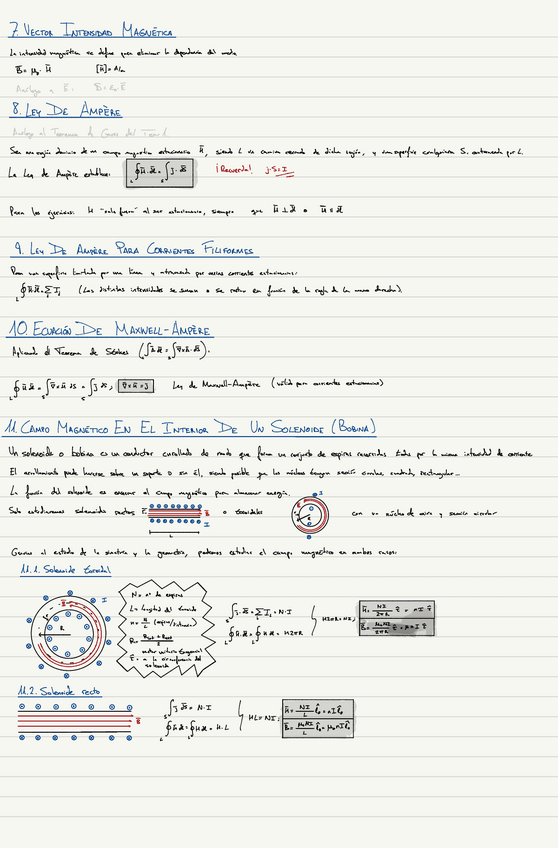 7. VECTOR INTENSIDAD MAGNÉTICA
La intensidad magnética se define para eliminar la dependencia del medio
B̄ = μ₀ · H̄ [H̄] = A/m
Análogo a Ē:
8. LEY DE AMPÈRE
Análogo al Teorema de Gauss del Tema 1
Sea una región dominio de un campo magnético estacionario H̄, siendo L un camino cerrado de dicha región, y una superficie cualquiera S, enterrada por L.
La Ley de Ampère establece: ∮H̄·dl̄ = ∫J̄·dS̄ ¡Recuerda! J·S = I
Para los ejercicios: H "sale fuera" al ser estacionario, siempre que
9. LEY DE AMPÈRE PARA CORRIENTES FILIFORMES
Para una superficie limitada por una línea y atravesada por varias corrientes estacionarias:
∮H̄·dl̄ = ΣIⱼ (Las distintas intensidades se suman o se restan en función de la regla de la mano derecha).
10. ECUACIÓN DE MAXWELL-AMPÈRE
Aplicando el Teorema de Stokes
∮H̄·dl̄ = ∫∇×H̄·dS = ∫J·dS; ∇×H̄ = J Ley de Maxwell-Ampère (válido para corrientes estacionarias)
11. CAMPO MAGNÉTICO EN EL INTERIOR DE UN SOLENOIDE (BOBINA)
Un solenoide o bobina es un conductor enrollado de modo que forma un conjunto de espiras recorridas todas por la misma intensidad de corriente
El arrollamiento puede hacerse sobre un soporte o sin él, siendo posible que los núcleos tengan sección circular, cuadrada, rectangular...
La función del solenoide es encerrar el campo magnético para almacenar energía.
Solo estudiaremos solenoides rectos o toroidales con un núcleo de aire y sección circular
I
B̄
L
Gracias al estudio de la simetría y la geometría, podemos estudiar el campo magnético en ambos casos:
11.1. Solenoide toroidal
I
R
N = nº de espiras
L = longitud del
n = N/L (espiras/metro)
vector unitario tangencial
a la circunferencia del
solenoide
∫J̄·dS̄ = ΣIⱼ = N·I
∮H̄·dl̄ = ∮H·dl = H2πR
H2πR = NI;
H̄ = NI/2πR τ̂ = nI τ̂
B̄ = μ₀NI/2πR τ̂ = μ₀nI τ̂
11.2. Solenoide recto
B̄
∫J̄·dS̄ = N·I
∮H̄·dl̄ = ∮H·dl = H·L
HL = NI;